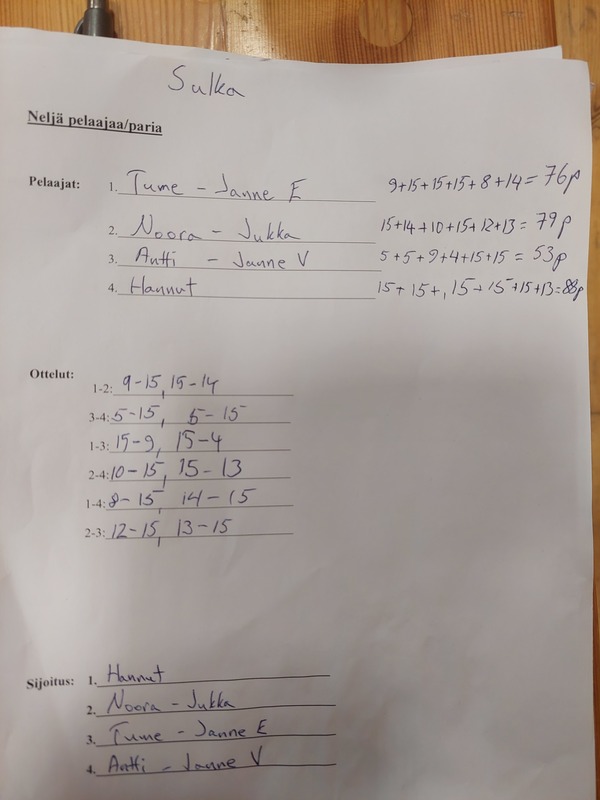 Sulka
Neljä pelaajaa/paria
Pelaajat: 1. Tume - Janne E 9+15+15+15+8+14=76p
2. Noora - Jukka 15+14+10+15+12+13=79p
3. Antti - Janne V 5+5+9+4+15+15=53p
4. Hannut 15+15+15+15+15+13=88p
Ottelut:
1-2: 9-15, 15-14
3-4: 5-15, 5-15
1-3: 15-9, 15-4
2-4: 10-15, 15-13
1-4: 8-15 14-15
2-3: 12-15, 13-15
Sijoitus: 1. Hannut
2. Noora - Jukka
3. Tume - Janne E
4. Antti - Janne V